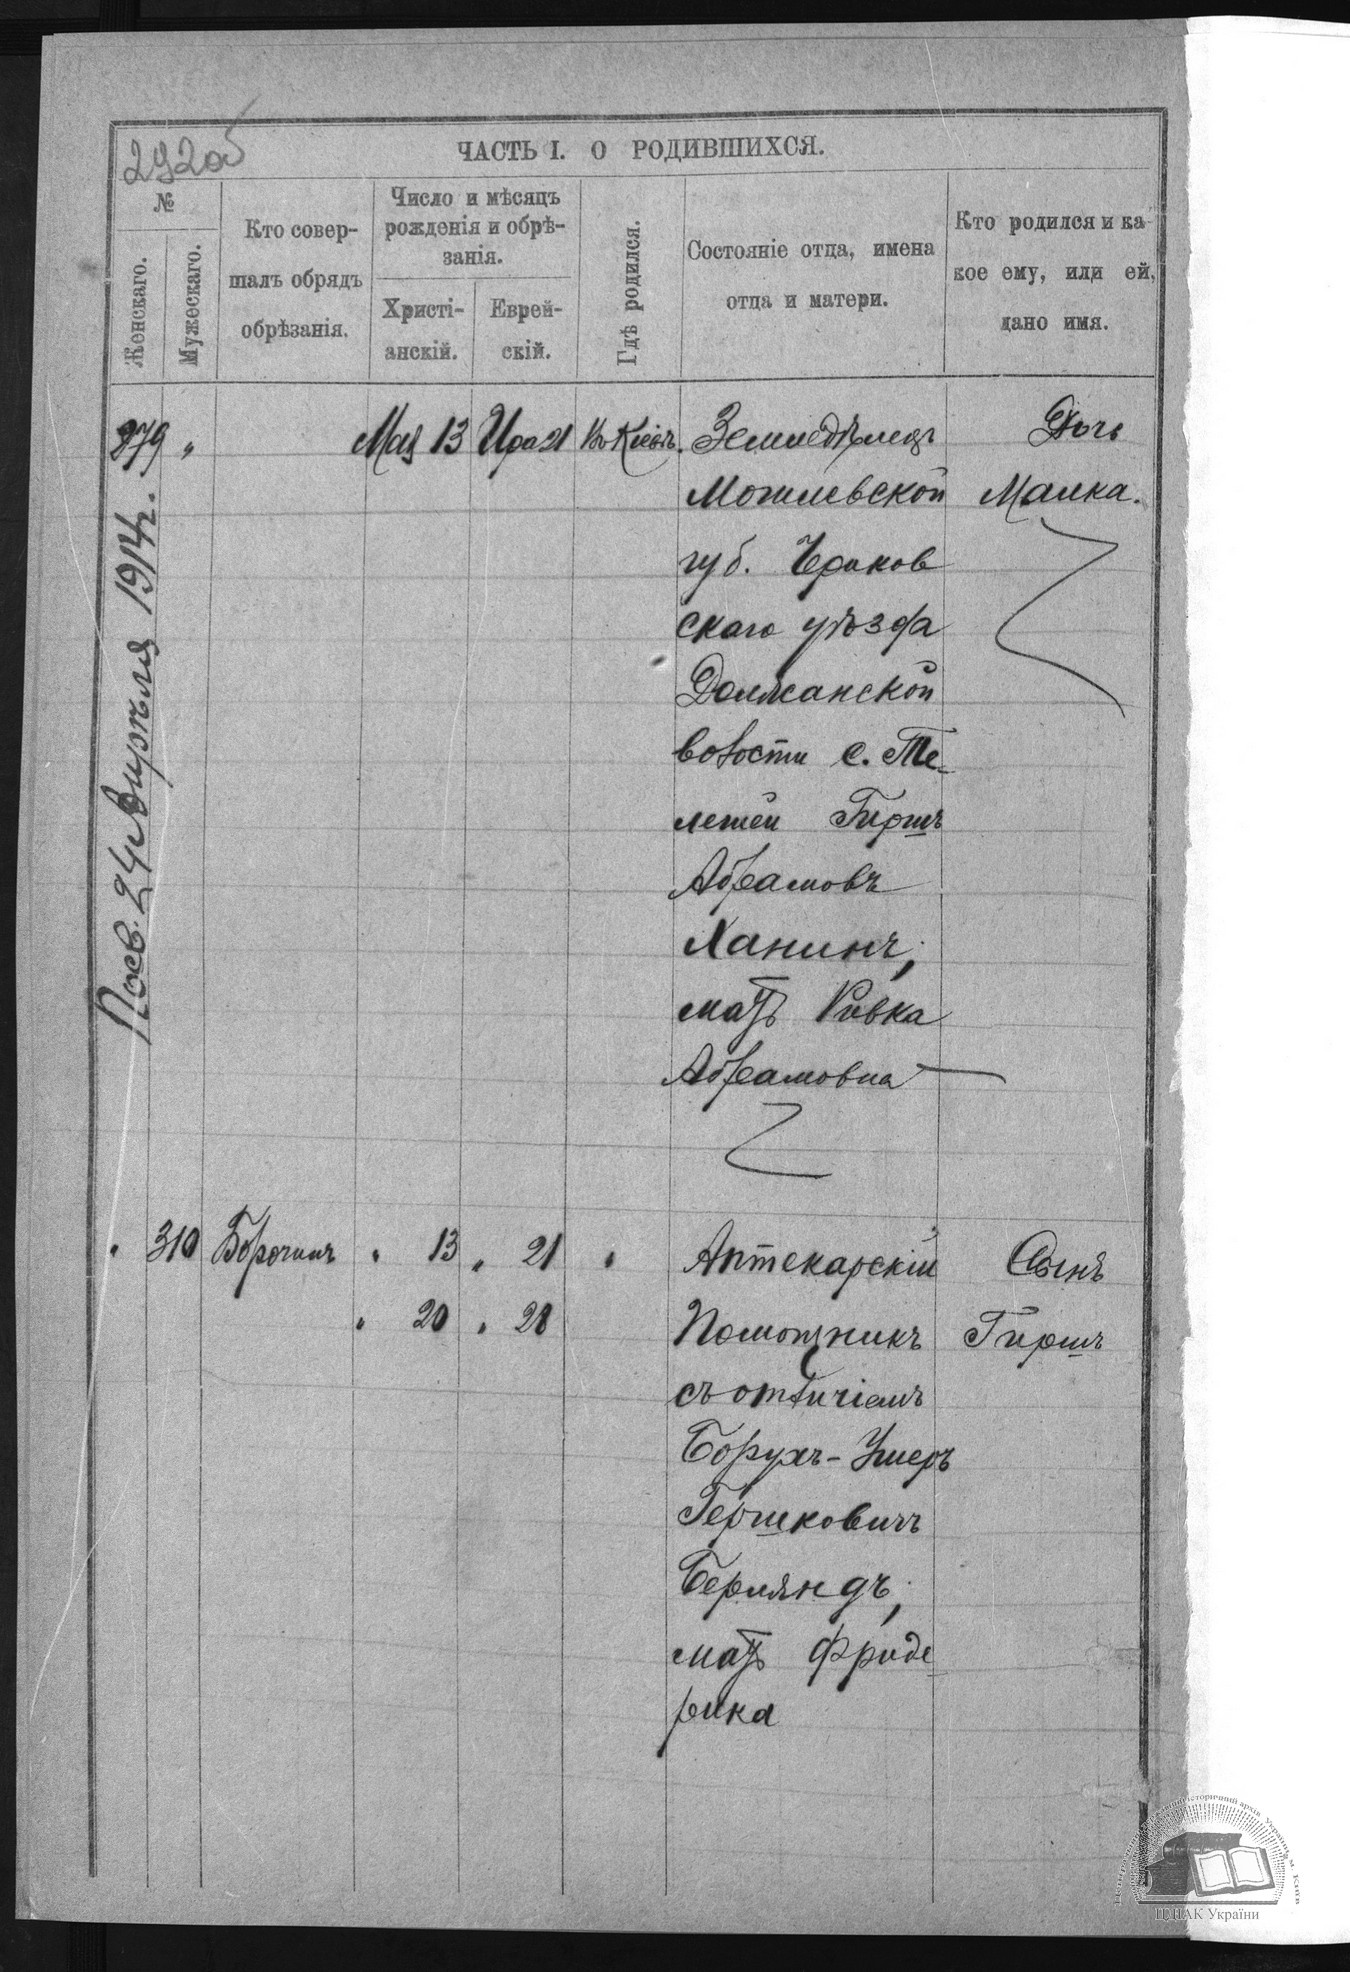 292об
ЧАСТЬ I. О РОДИВШИХСЯ.
№
Женскаго.
Мужескаго.
Кто совер-
шалъ обрядъ
обрѣзанія.
Число и мѣсяцъ
рожденія и обрѣ-
занія.
Христі-
анскій.
Еврей-
скій.
Гдѣ родился.
Состояніе отца, имена
отца и матери.
Кто родился и ка-
кое ему, или ей,
дано имя.
279 "
Мая 13
Ира 21
Въ Кіевѣ.
Земледѣлецъ
Могилевской
губ. Чериков
скаго уѣзда
Должанской
волости с. Те-
лешей Гиршъ
Абрамовъ
Ханинъ,
мать Ривка
Абрамовна
Дочь
Малка.
Посв. 24 Апрѣля 1914г.
" 310
Борочинъ
" 13 " 21 "
" 20 " 28
Аптекарскій
Помощникъ
съ отличіемъ
Борухъ-Ушеръ
Гершковичъ
Берляндъ,
мать Фриде
рика
Сынъ
Гиршъ
ЦДІАК України